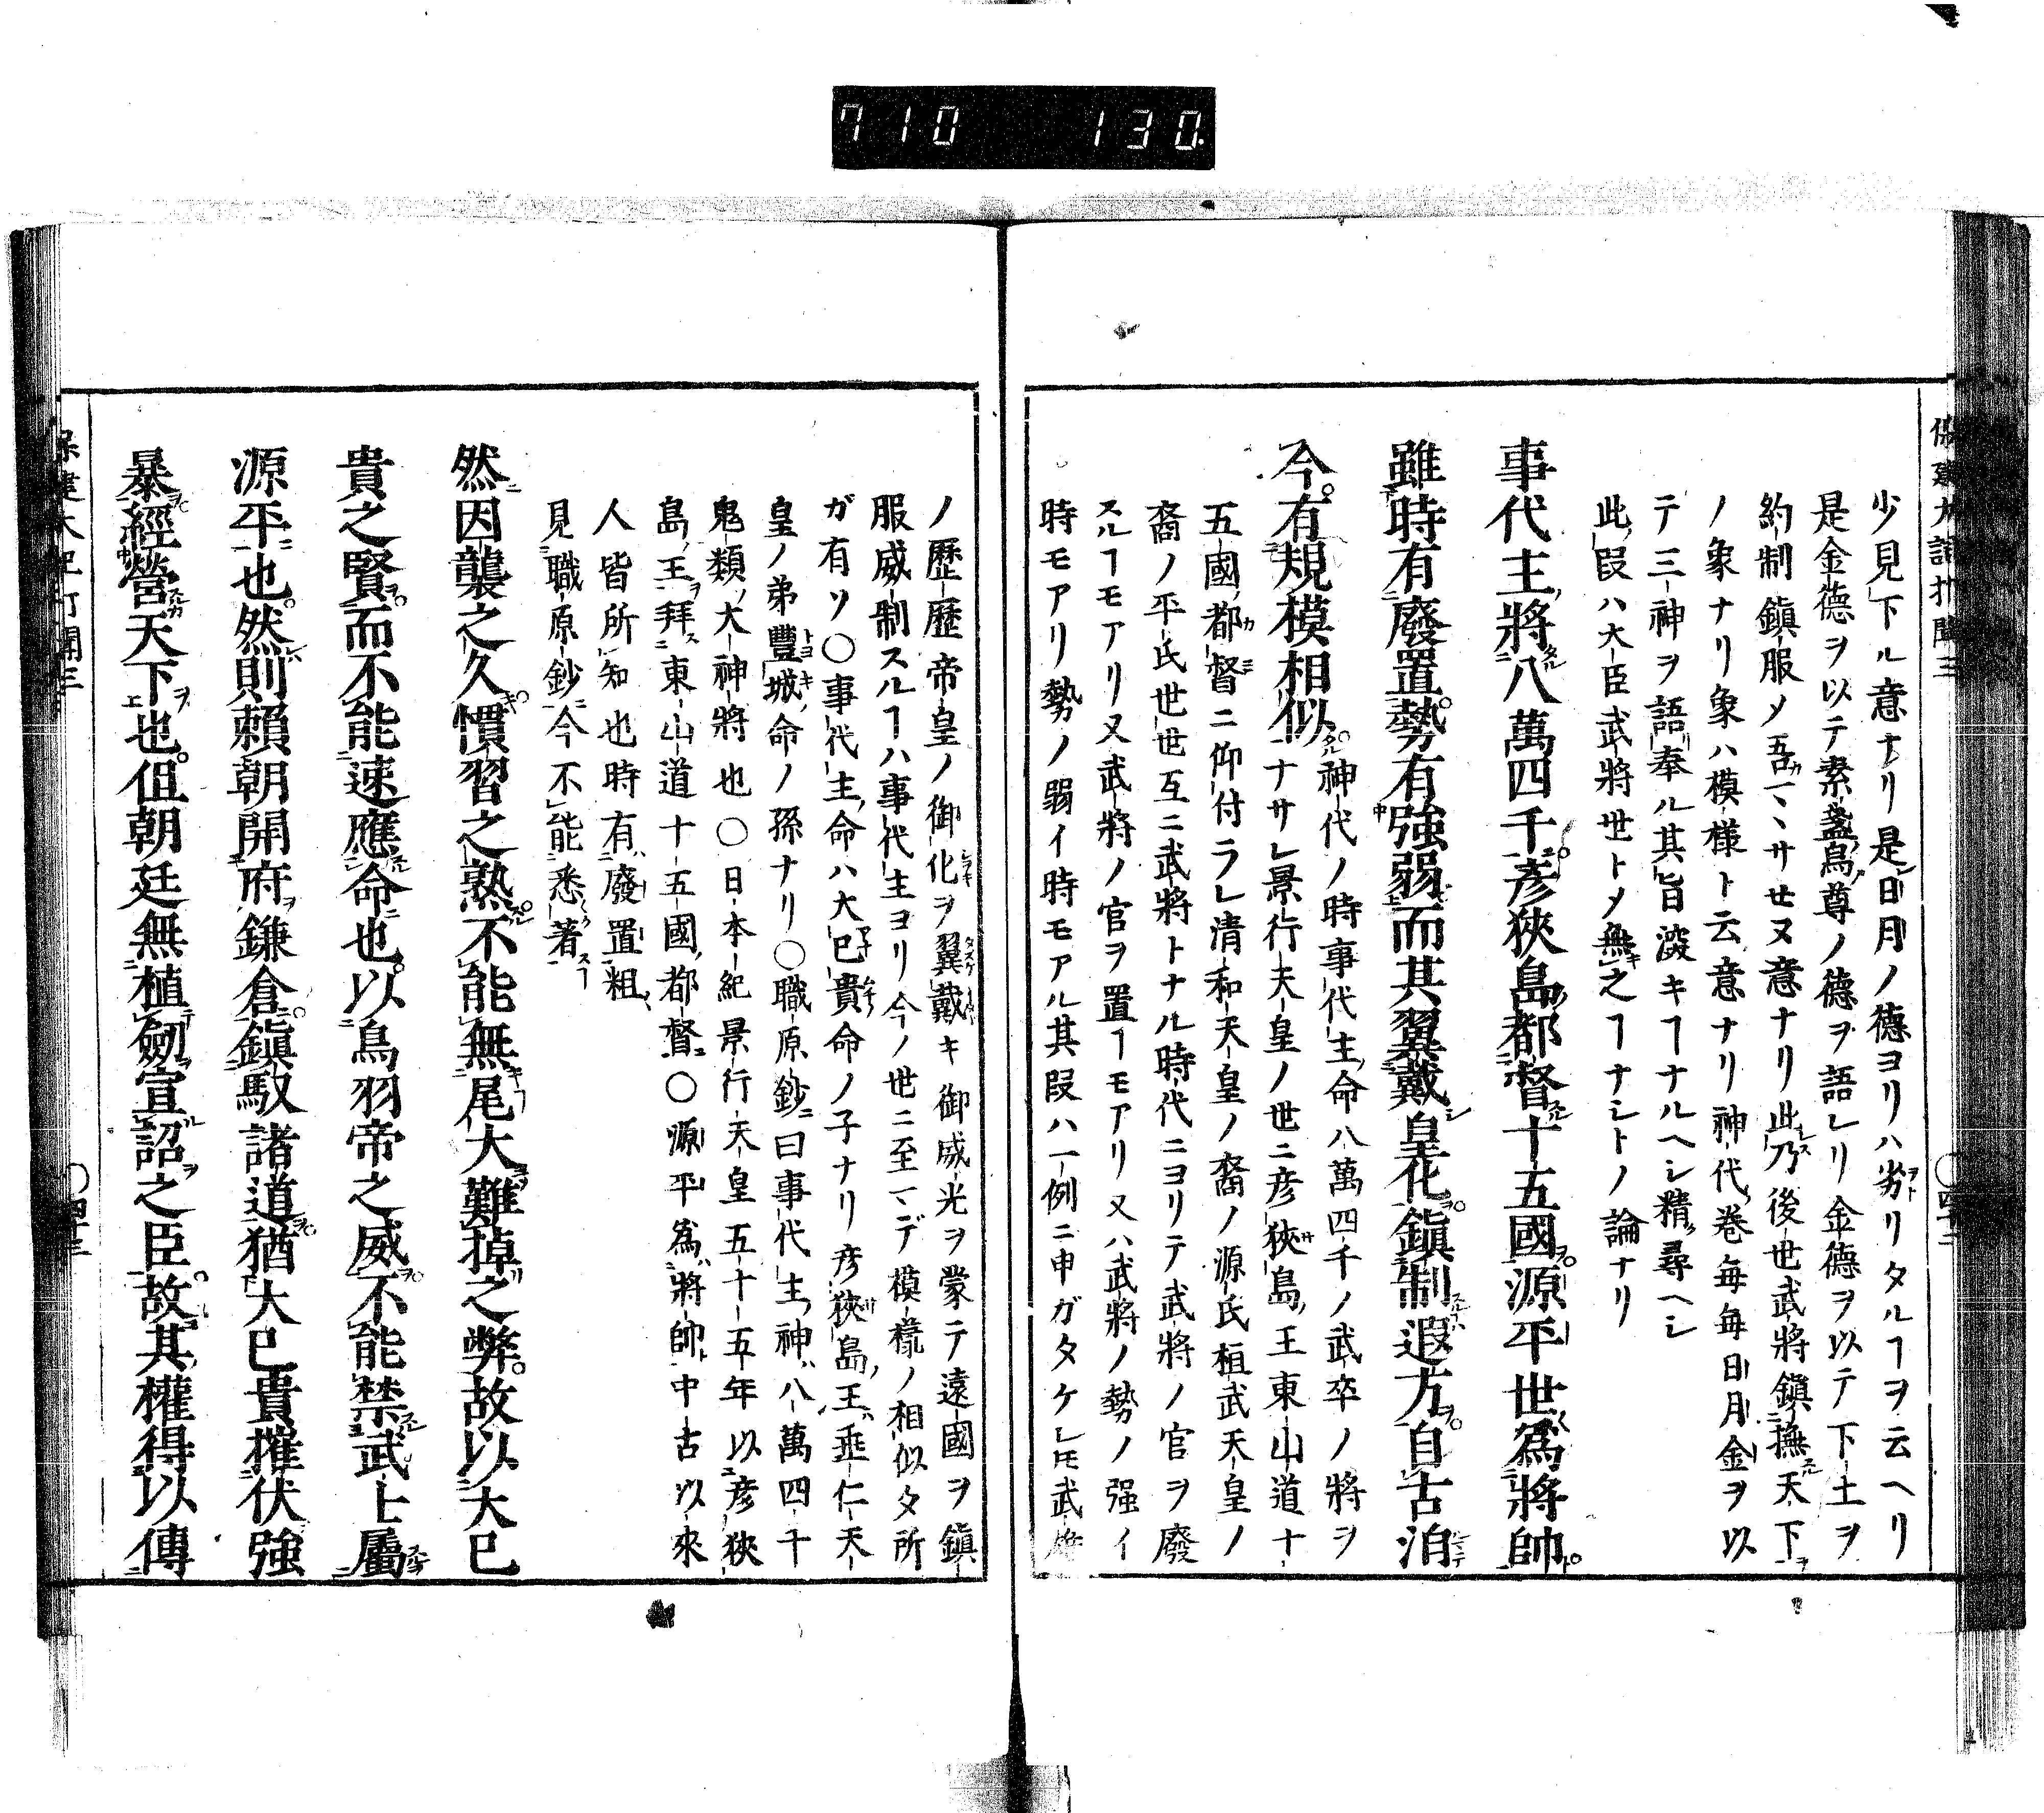 710 130
少見下ル意ナリ是日月ノ德ヨリハ劣リタルヿヲ云ヘリ
是金德ヲ以テ素盞烏尊ノ德ヲ語レリ金德ヲ以テ下土ヲ
約制鎮服メ吾マヽサセヌ意ナリ此乃後世武將鎮撫天下
ノ象ナリ象ハ模様ト云意ナリ神代巻毎毎日月金ヲ以
テ三神ヲ語奉ル其旨深キヿナルヘシ精尋ヘシ
此段ハ大臣武將世トメ無之ヿナシトノ論ナリ
事代主將八萬四千彥狹島都督十五國源平世爲將帥
雖時有廢置勢有強弱而其翼戴皇化鎭制遐方自古洎
今有規模相似神代ノ時事代主命八萬四千ノ武卒ノ將ヲ
ナサレ景行天皇ノ世ニ彦狹島王東山道十
五國都督ニ仰付ラレ清和天皇ノ裔ノ源氏桓武天皇ノ
裔ノ平氏世世互ニ武將トナル時代ニヨリテ武將ノ官ヲ廢
スルヿモアリ又武將ノ官ヲ置ヿモアリ又ハ武將ノ勢ノ强イ
時モアリ勢ノ弱イ時モアル其段ハ一例ニ申ガタケレ𪜈武將
ノ歷歷帝皇ノ御化ヲ翼戴キ御威光ヲ蒙テ遠國ヲ鎮
服威制スルヿハ事代主ヨリ今ノ世ニ至マデ模様ノ相似タ所
ガ有ソ〇事代主命ハ大巳貴命ノ子ナリ彦狹島王垂仁天
皇ノ弟豐城命ノ孫ナリ〇職原鈔ニ曰事代主神八萬四千
鬼類大神將也〇日本紀景行天皇五十五年以彦狹
島王拜東山道十五國都督〇源平爲將帥中古以來
人皆所知也時有廢置粗
見職原鈔今不能悉著
然因襲之久慣習之熟不能無尾大難掉之弊故以大巳
貴之賢而不能速應命也以鳥羽帝之威不能禁武士屬
源平也然則賴朝開府鎌倉鎭馭諸道猶大巳貴摧伏強
暴經營天下也但朝廷無植劒宣詔之臣故其權得以傳